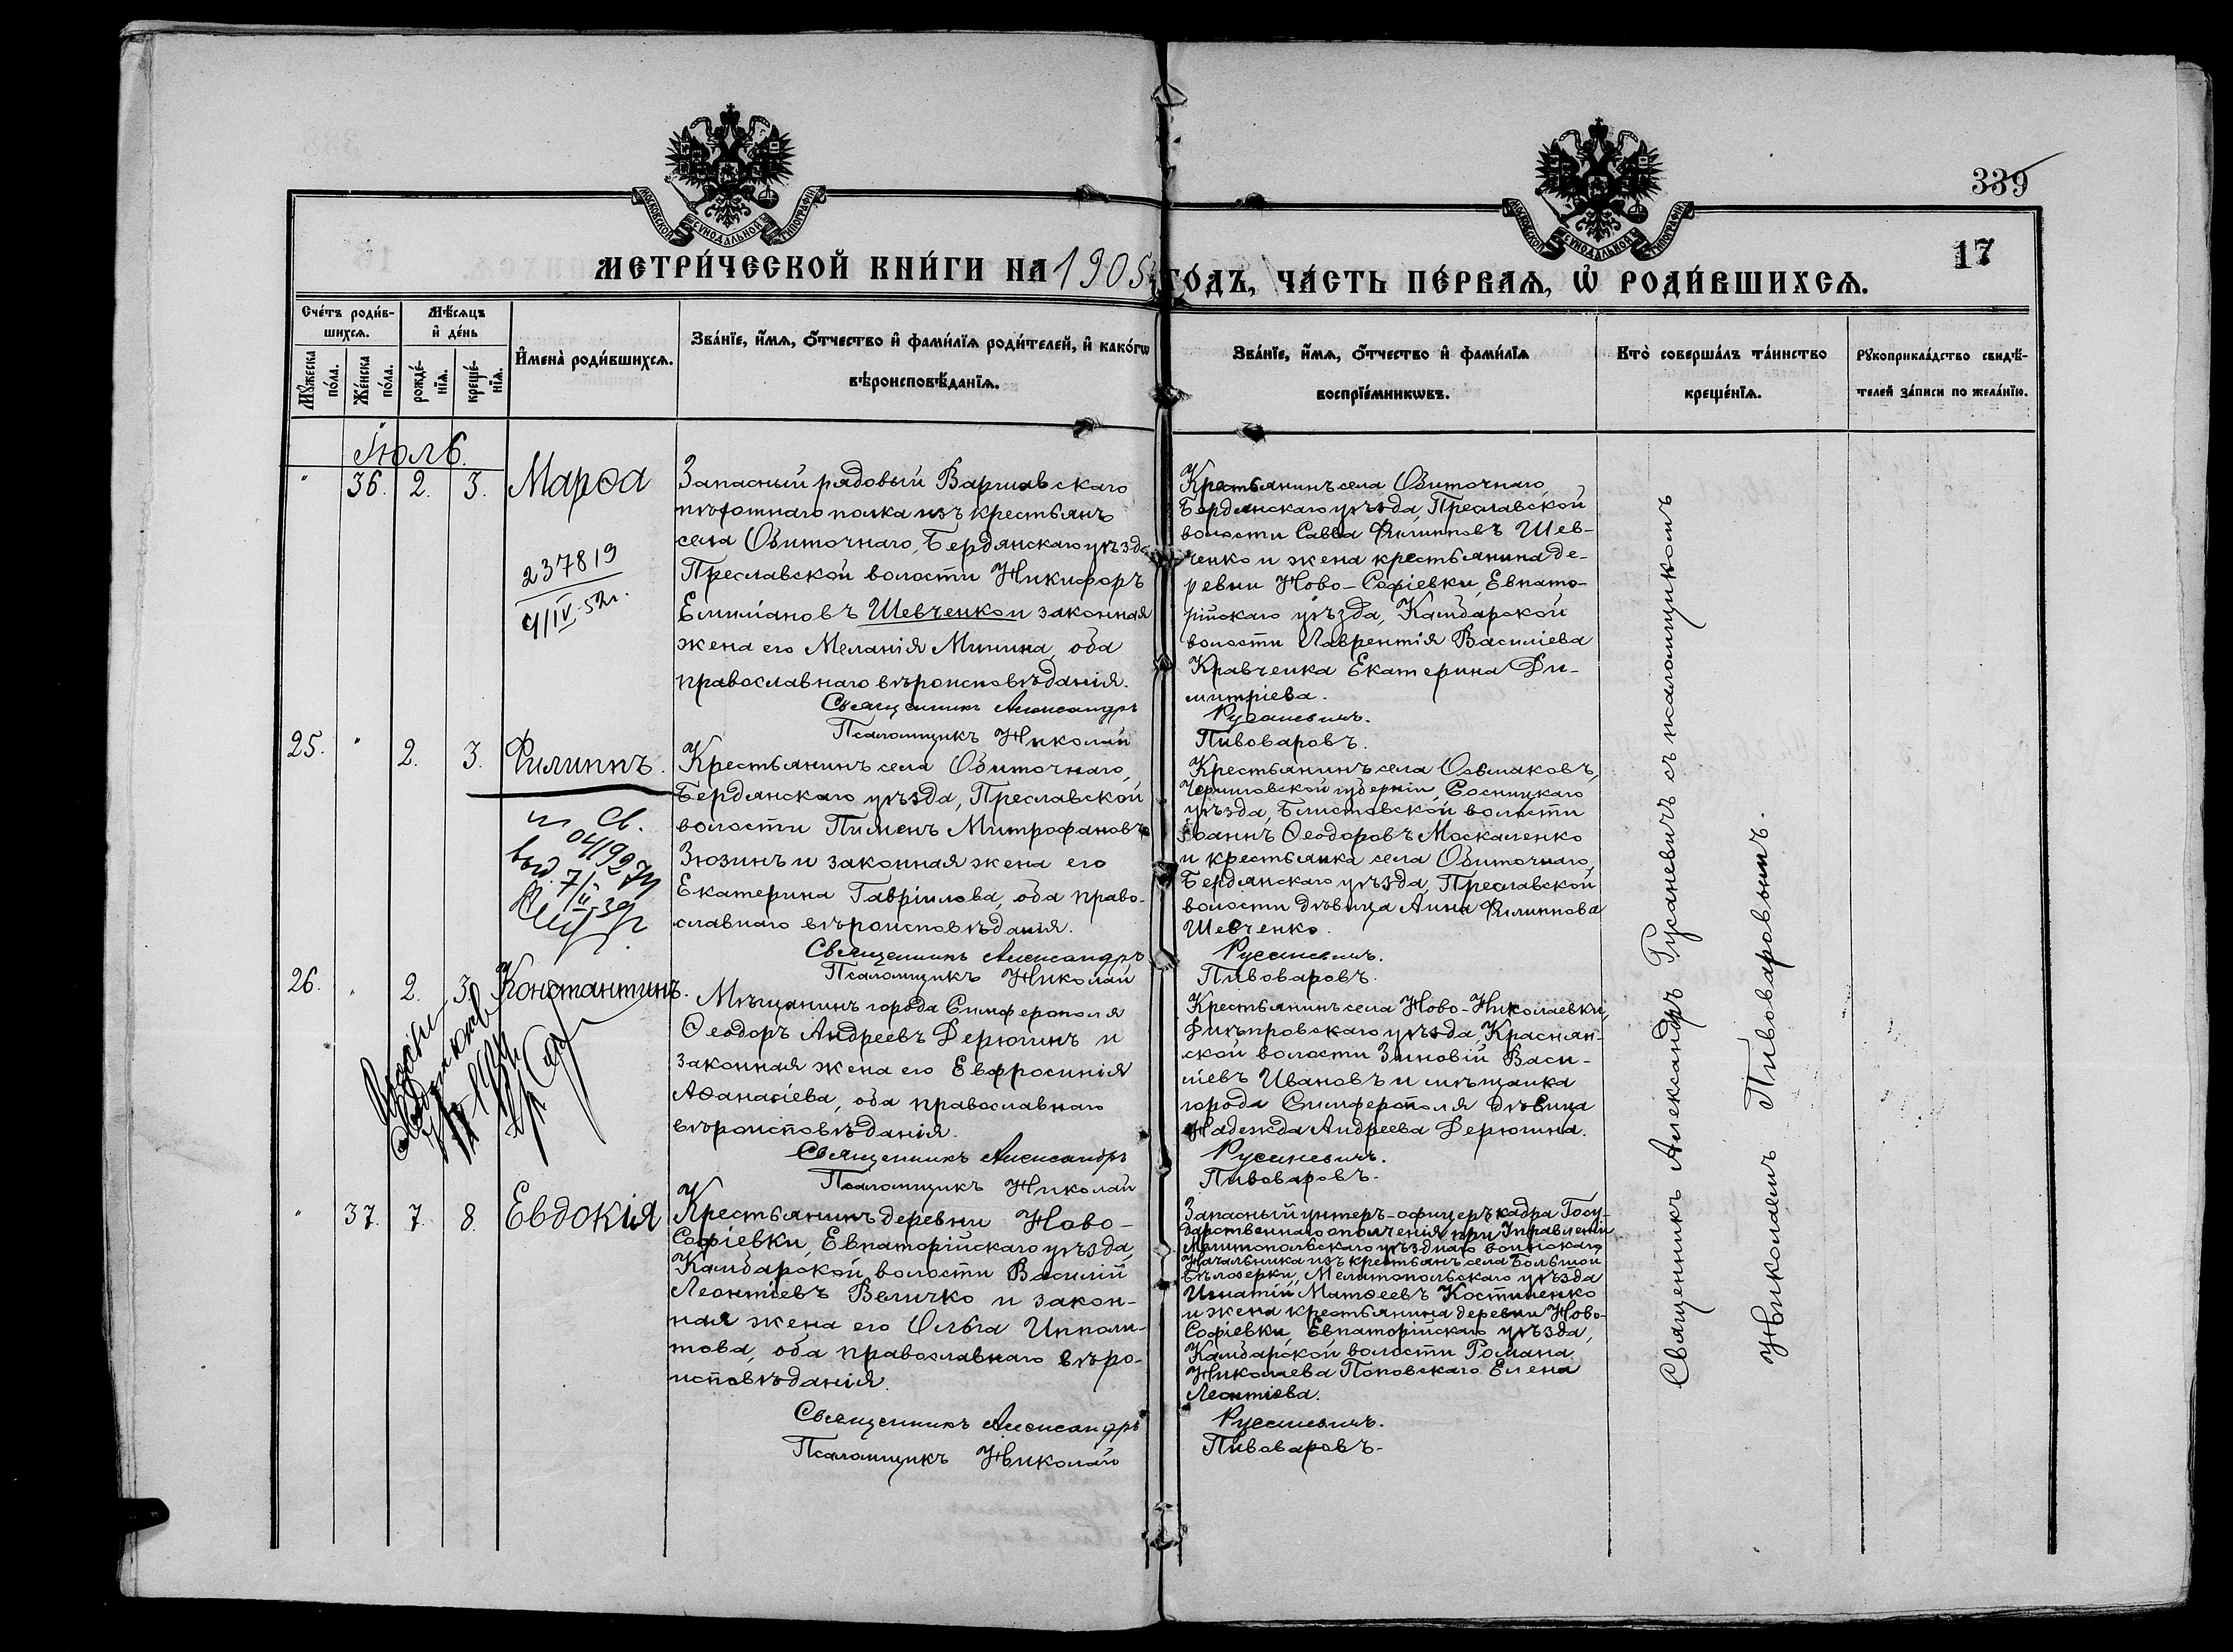 339
17
МОСКОВСКОЙ СѴНОДАЛЬНОЙ ТИПОГРАФІИ
МОСКОВСКОЙ СѴНОДАЛЬНОЙ ТИПОГРАФІИ
МЕТРИ́ЧЕСКОЙ КНИ́ГИ НА 1905 ГО́ДЪ, ЧА́СТЬ ПЕ́РВАѦ, Ѽ РОДИ́ВШИХСѦ.
Сче́тъ роди́в-
шихсѧ.
Мꙋ́жеска по́ла.
Же́нска по́ла.
Мѣ́сѧцъ
и҆ де́нь
рожде́-
нїѧ.
креще́-
нїѧ.
И҆мена̀ роди́вшихсѧ.
Зва́нїе, и҆́мѧ, ѻ҆́тчество и҆ фами́лїѧ роди́телей, и҆ како́гѡ
вѣроисповѣ́данїѧ.
Зва́нїе, и҆́мѧ, ѻ҆́тчество и҆ фами́лїѧ
воспрїе́мникѡвъ.
Кто̀ соверша́лъ та́инство
креще́нїѧ.
Рꙋкоприкла́дство свидѣ́-
телей за́писи по жела́нїю.
Іюль.
" 36. 2. 3. Марѳа
237819
4/IV-52г.
Запасный рядовый Варшавскаго
пѣхотнаго полка изъ крестьянъ
села Обиточнаго, Бердянскаго уѣзда
Преславской волости Никифоръ
Емиліановъ Шевченко и законная
жена его Меланія Минина, оба
православнаго вѣроисповѣданія.
Священникъ Александръ
Псаломщикъ Николай
Крестьянинъ села Обиточнаго,
Бердянскаго уѣзда, Преславской
волости Савва Филипповъ Шев-
ченко и жена крестьянина де-
ревни Ново-Софіевки, Евпато-
рійскаго уѣзда, Камбарской
волости Лаврентія Василіева
Кравченка Екатерина Ди-
митріева.
Русаневичъ.
Пивоваровъ.
25. " 2. 3. Филиппъ.
св.
выд. 7/II-39г
Крестьянинъ села Обиточнаго,
Бердянскаго уѣзда, Преславской
волости Пименъ Митрофановъ
Зюзинъ и законная жена его
Екатерина Гавріилова, оба право-
славнаго вѣроисповѣданія.
Священникъ Александръ
Псаломщикъ Николай
Крестьянинъ села
Черниговской губерніи, Сосницкаго
уѣзда, волости
Іоаннъ Ѳеодоровъ Москаленко
и крестьянка села Обиточнаго,
Бердянскаго уѣзда, Преславской
волости дѣвица Анна Филиппова
Шевченко.
Русаневичъ.
Пивоваровъ.
26. " 2. 3. Константинъ.
Мѣщанинъ города Симферополя
Ѳеодоръ Андреевъ Дерюгинъ и
законная жена его Евфросинія
Аѳанасіева, оба православнаго
вѣроисповѣданія.
Священникъ Александръ
Псаломщикъ Николай
Крестьянинъ села Ново-Николаевки,
Днѣпровскаго уѣзда, Краснян-
ской волости Зиновій Васи-
ліевъ Ивановъ и мѣщанка
города Симферополя дѣвица
Надежда Андреева Дерюгина.
Русаневичъ.
Пивоваровъ.
" 37. 7. 8. Евдокія
Крестьянинъ деревни Ново-
Софіевки, Евпаторійскаго уѣзда,
Камбарской волости Василій
Леонтіевъ Величко и закон-
ная жена его Ольга Ипполи-
това, оба православнаго вѣро-
исповѣданія.
Священникъ Александръ
Псаломщикъ Николай
Запасный унтеръ-офицеръ кадра Госу-
дарственнаго ополченія при Управленіи
Мелитопольскаго уѣзднаго воинскаго
Начальника изъ крестьянъ села Большой
Бѣлозерки, Мелитопольскаго уѣзда
Игнатій Матѳеевъ Костиненко
и жена крестьянина деревни Ново-
Софіевки, Евпаторійскаго уѣзда,
Камбарской волости Романа
Николаева Поповскаго Елена
Леонтіева.
Русаневичъ.
Пивоваровъ.
Священникъ Александръ Русаневичъ съ псаломщикомъ
Николаемъ Пивоваровымъ.